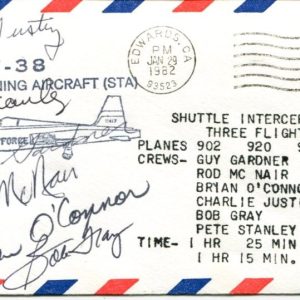 EDWARDS, CA
PM
JAN
1982
93523
-38
NING AIRCRAFT (STA)
FORCE
McNair
O'Connor
Bob Gray
SHUTTLE INTERCEP
THREE FLIGHT
PLANES 902 920 9
CREWS- GUY GARDNER
ROD MC NAIR
BRIAN O'CONNO
CHARLIE JUST
BOB GRAY
PETE STANLEY
TIME- 1 HR 25 MIN
1 HR 15 MIN.